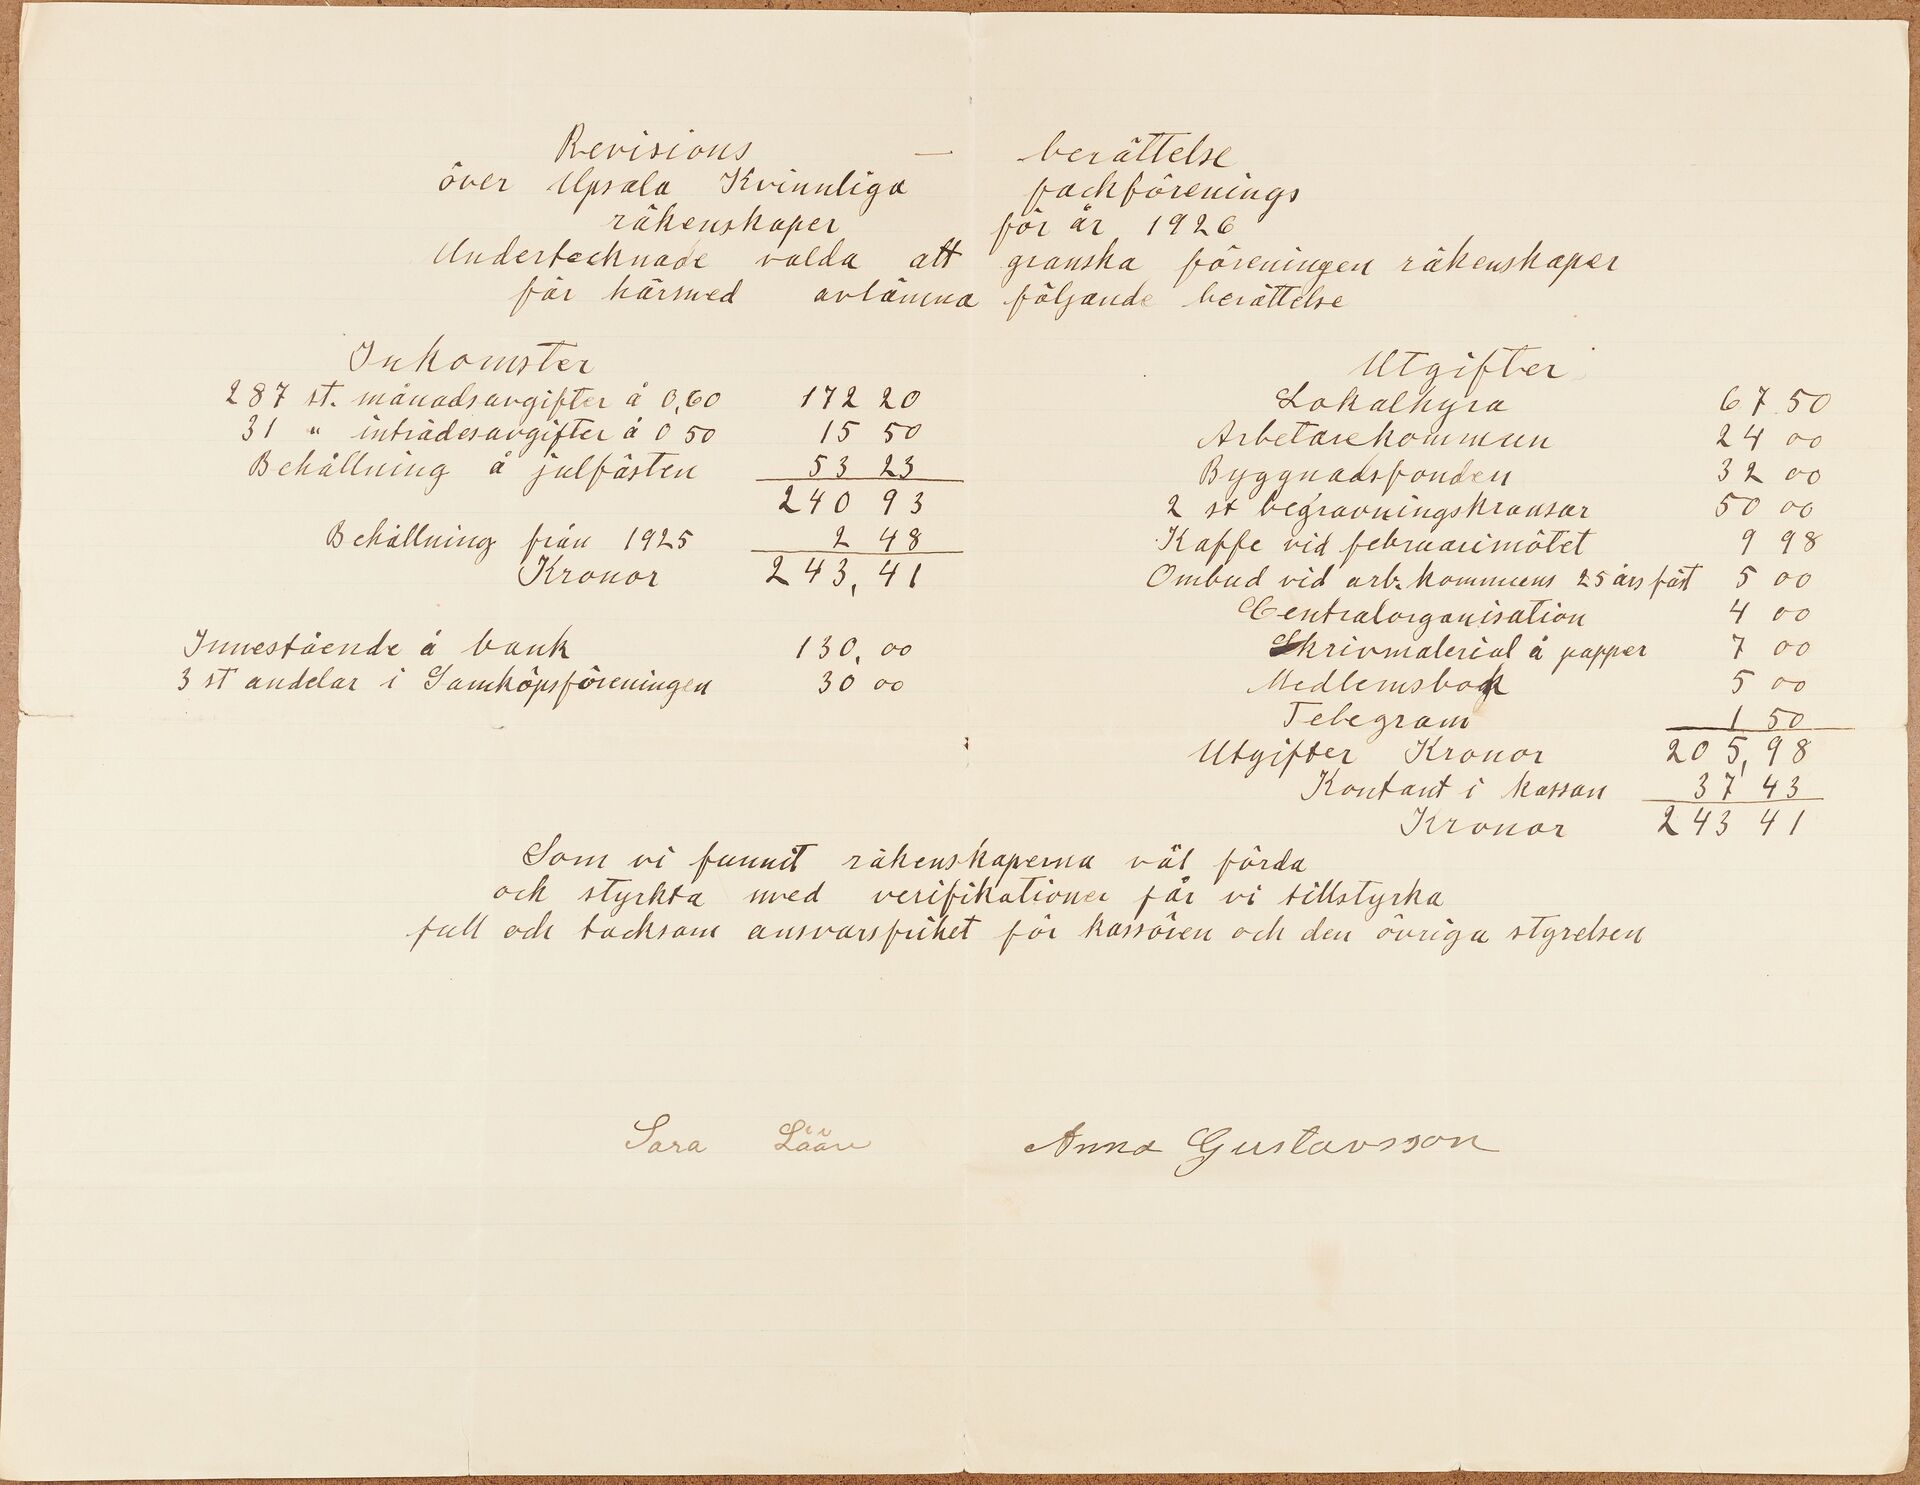 Revisions — berättelse
över Upsala Kvinnliga fackförenings
räkenskaper för år 1926
Undertecknade valda att granska föreningen räkenskaper
får härmed avlämna följande berättelse
Inkomster
287 st. månadsavgifter å 0,60 172 20
31 " inträdesavgifter å 0 50 15 50
Behållning å julfästen 53 23
240 93
Behållning från 1925 2 48
Kronor 243,41
Innestående å bank 130,00
3 st andelar i Samköpsföreningen 30 00
Utgifter
Lokalhyra 67 50
Arbetarekommun 24 00
Byggnadsfonden 32 00
2 st begravningskransar 50 00
Kaffe vid februarimötet 9 98
Ombud vid arb. kommuens 25 års fäst 5 00
Centralorganisation 4 00
Skrivmaterial å papper 7 00
Medlemsbok 5 00
Telegram 1 50
Utgifter Kronor 205,98
Kontant i kassan 37 43
Kronor 243 41
Som vi funnit räkenskaperna väl förda
och styrkta med verifikationer får vi tillstyrka
full och tacksam ansvarsfrihet för kassören och den övriga styrelsen
Sara Lääv Anna Gustavsson